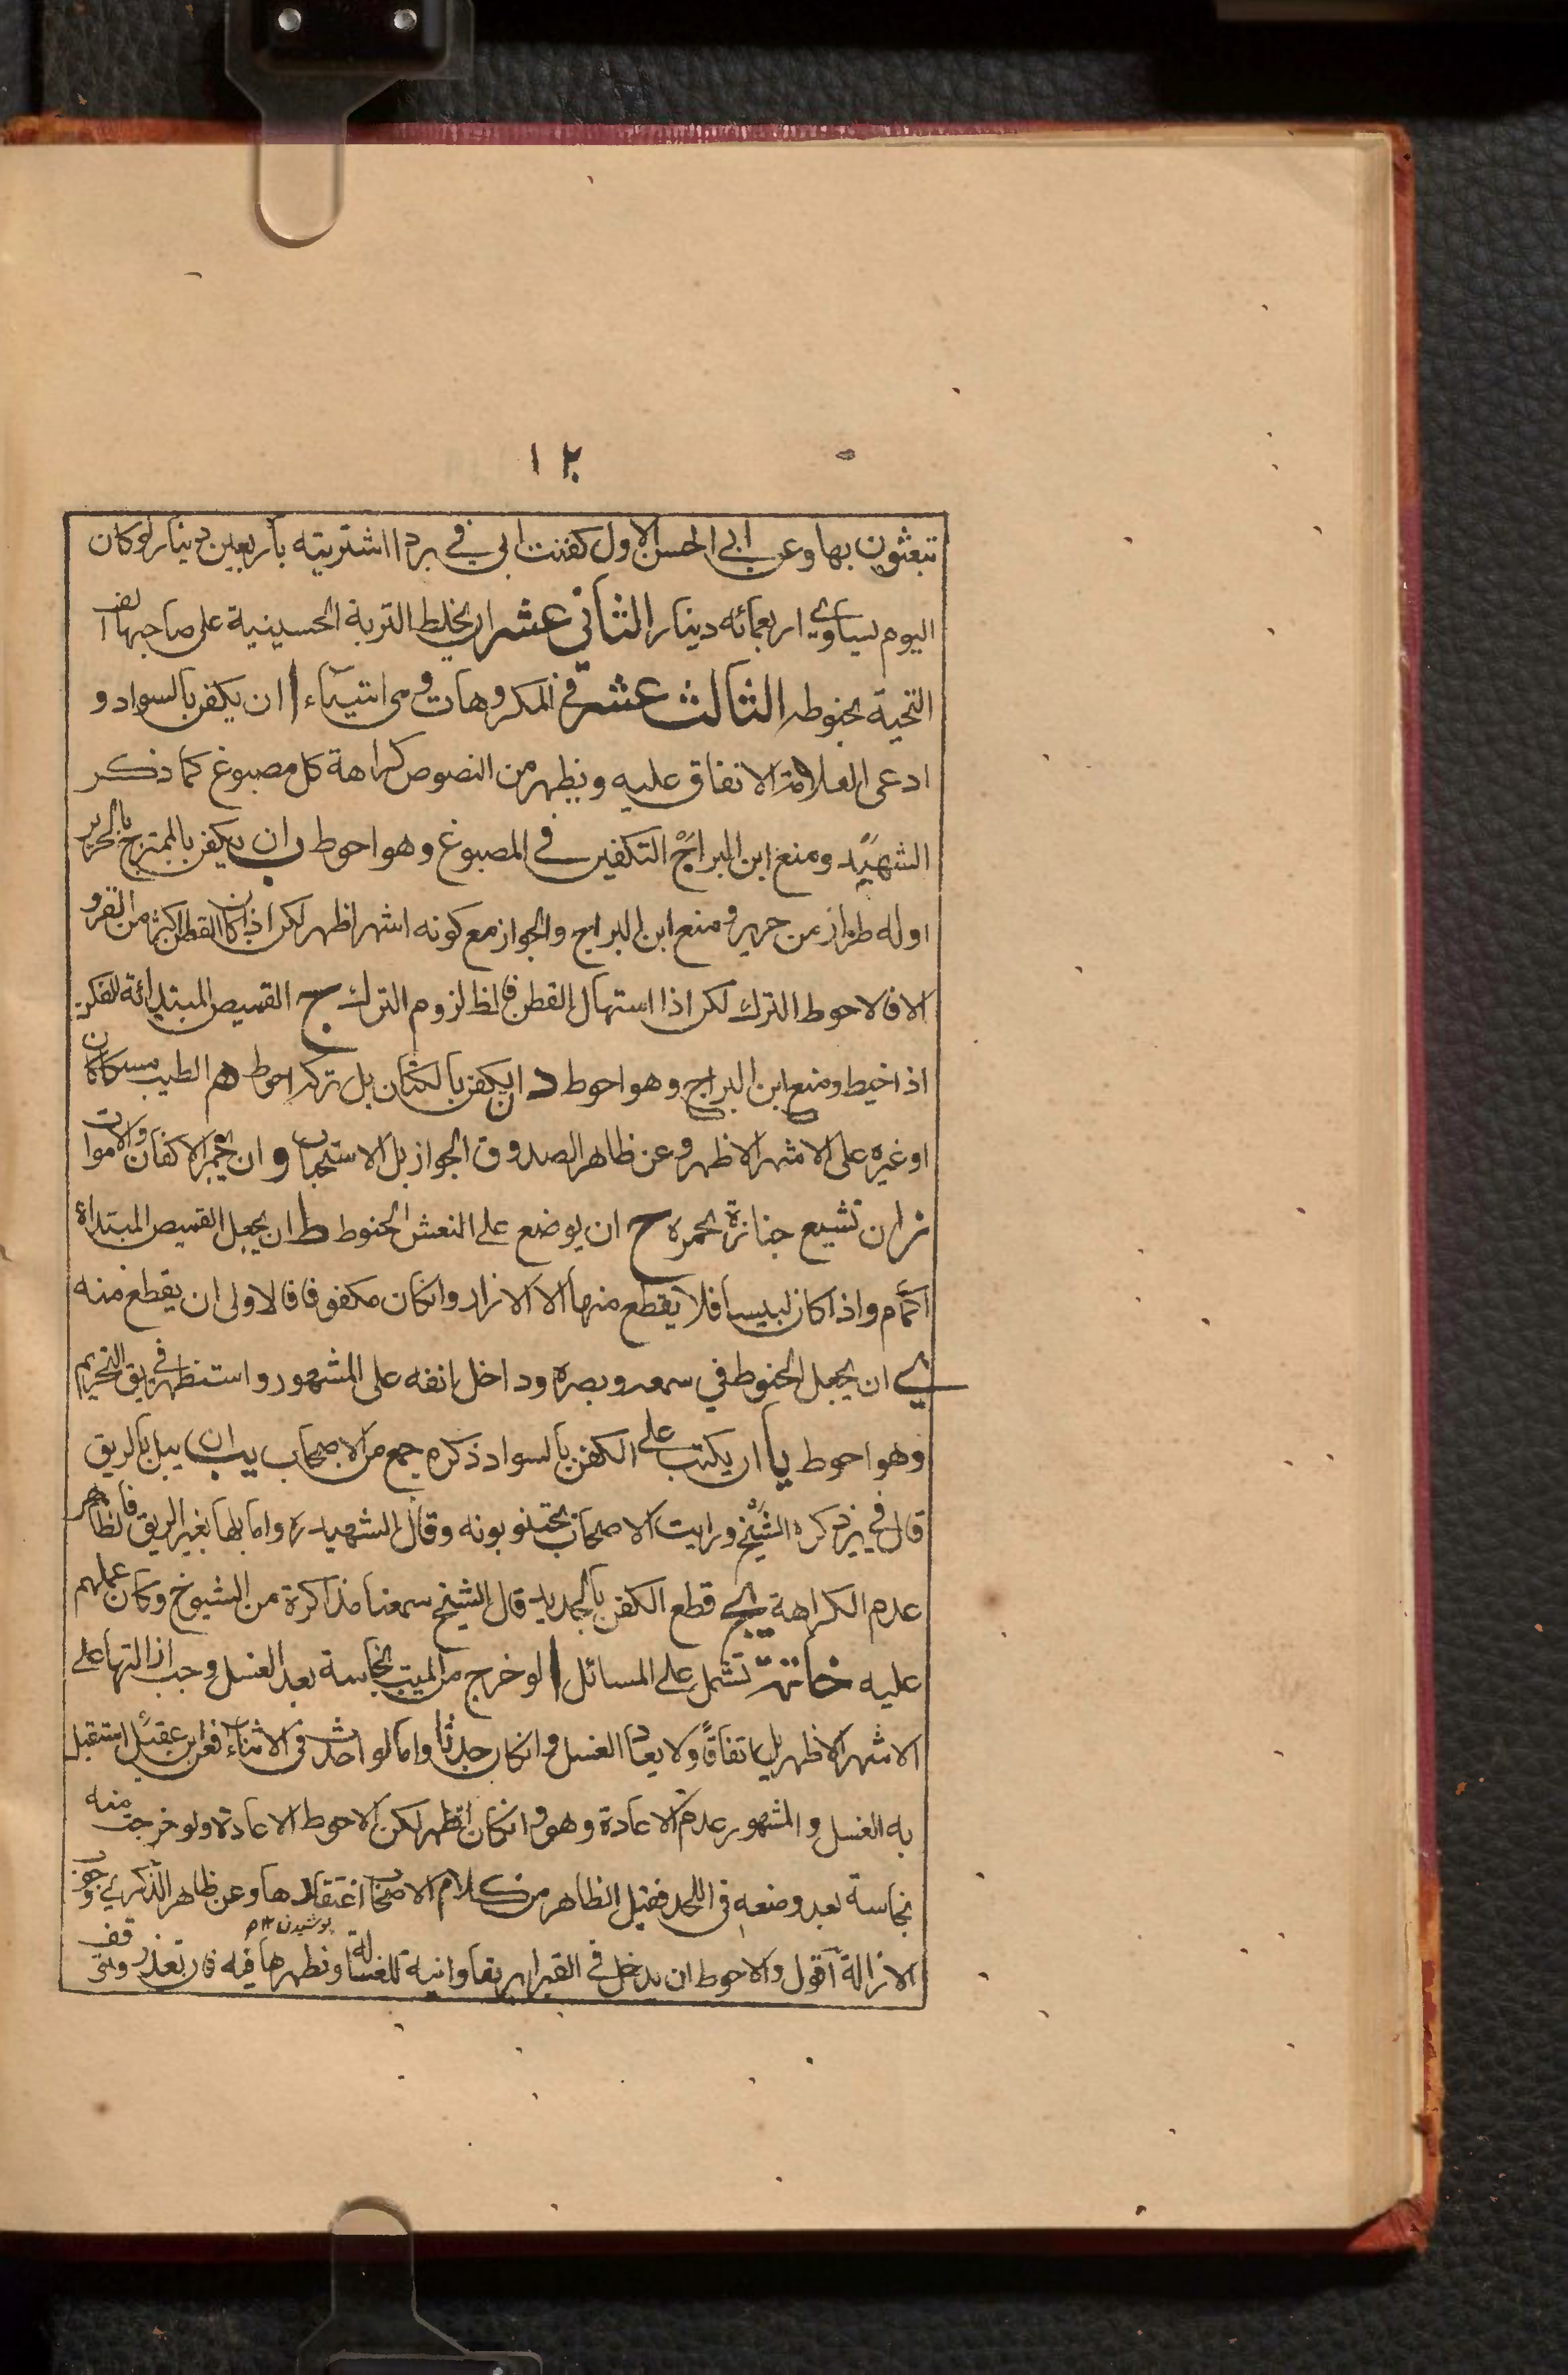 ١٢
تبعثون بها وعن ابي الحسن الاول كفنت ابي في بردا اشتريته بأربعين دينار لو كان
اليوم لساوي اربعمائه دينار الثاني عشر ان يخلط التربة الحسينية على صاحبها الف
التحية بحنوطه الثالث عشر في المكروهات وهي اشياء ا ان يكفن بالسواد و
ادعى العلامة الاتفاق عليه ويظهر من النصوص كراهة كل مصبوغ كما ذكر
الشهيد ومنع ابن البراج التكفين في المصبوغ وهو احوط ب ان يكفن بالممتزج بالحرير
او له طراز من حرير ومنع ابن البراج والجواز مع كونه اشهر اظهر لكن اذا كان القطن اكثر من القز و
الا فالاحوط الترك لكن اذا استهال القطن فالظ لزوم الترك ج القميص المبتدائة للكفن
اذا خيط ومنع ابن البراج وهو احوط د ان يكفن بالكتان بل تركه احوط ه الطيب مسكا كان
او غيره على الاشهر الاظهر وعن ظاهر الصدوق الجواز بل الاستحباب و ان يجمر الاكفان والاموات
ز ان تشيع جنازة بمجمره ح ان يوضع على النعش الحنوط ط ان يجعل القميص المبتداة
اكمام واذا كان لبيسا فلا يقطع منها الا الازرار وانكان مكفوفا فالاولى ان يقطع منه
ي ان يجعل الحنوط في سمعه وبصره وداخل انفه على المشهور واستظهر فريق التحريم
وهو احوط يا ان يكتب على الكفن بالسواد ذكره جمع من الاصحاب يب ان يبل بالريق
قال في ير ذكره الشيخ ورايت الاصحاب يجتنبونه وقال الشهيد ره واما بلها بغير الريق فالظاهر
عدم الكراهة يج قطع الكفن بالحديد قال الشيخ سمعنا مذاكرة من الشيوخ وكان عملهم
عليه خاتمة تشمل على المسائل ا لو خرج من الميت نجاسة بعد الغسل وجب ازالتها على
الاشهر الاظهر بل اتفاقاً ولا يعاد الغسل وانكان حدثا واما لو احدث في الاثناء فعن ابن عقيل استقبل
به الغسل والمشهور عدم الاعادة وهو وانكان اظهر لكن الاحوط الاعادة ولو خرجت منه
نجاسة بعد وضعه في اللحد فقيل الظاهر من كلام الاصحاب اغتفارها وعن ظاهر الذكري وجوب
پوشيدن ١٢ م
الازالة اقول والاحوط ان يدخل في القبر ابريقا وانية للغسالة وتطهرها فيه فان تعذر وقف